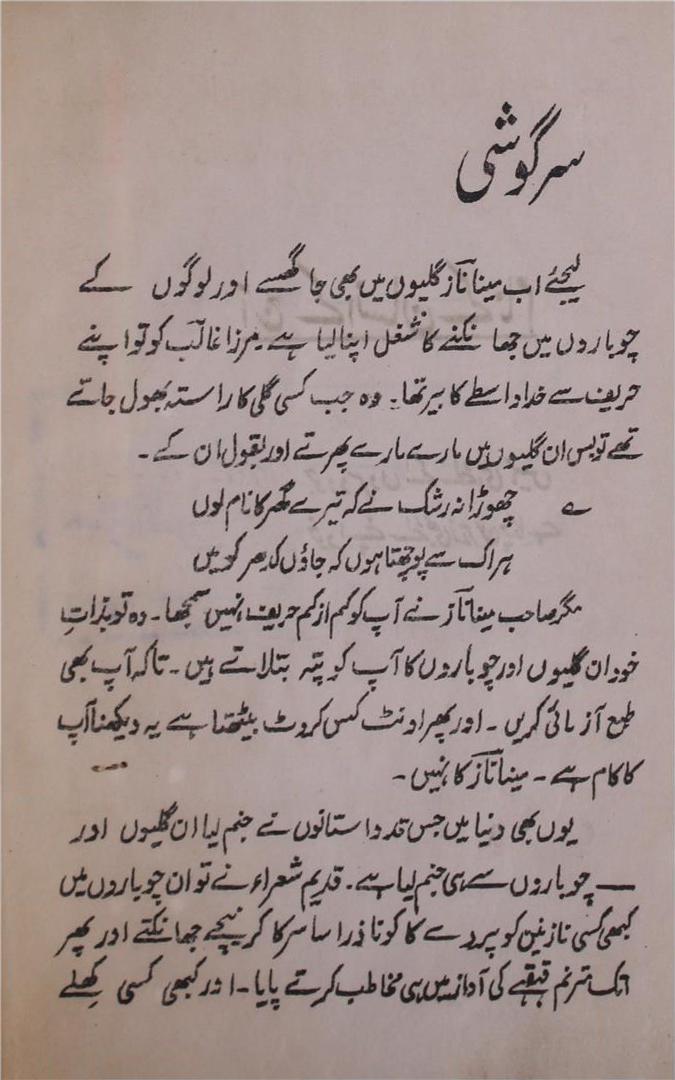 سرگوشی
لیجئے اب مینا نازؔ گلیوں میں بھی جا گھسے اور لوگوں کے
چوباروں میں جھانکنے کا شغل اپنا لیا ہے۔ مرزا غالبؔ کو تو اپنے
حریف سے خدا واسطے کا بیر تھا۔ وہ جب کسی گلی کا راستہ بھول جاتے
تھے تو بس ان گلیوں میں مارے مارے پھرتے اور بقول ان کے۔
؎ چھوڑا نہ رشک نے کہ تیرے گھر کا نام لوں
ہر اک سے پوچھتا ہوں کہ جاؤں کدھر کو میں
مگر صاحب مینا نازؔ نے آپ کو کم از کم حریف نہیں سمجھا۔ وہ تو بذاتِ
خود ان گلیوں اور چوباروں کا آپ کو پتہ بتلاتے ہیں۔ تاکہ آپ بھی
طبع آزمائی کریں۔ اور پھر اونٹ کس کروٹ بیٹھتا ہے یہ دیکھنا آپ
کا کام ہے۔ مینا نازؔ کا نہیں۔
یوں بھی دنیا میں جس قدر داستانوں نے جنم لیا ان گلیوں اور
چوباروں سے ہی جنم لیا ہے۔ قدیم شعراء نے تو ان چوباروں میں
کبھی کسی نازنین کو پردے کا کونا ذرا سا سرکا کر نیچے جھانکتے اور پھر
اک مترنم قہقہے کی آواز میں ہی مخاطب کرتے پایا۔ اور کبھی کسی کھلے